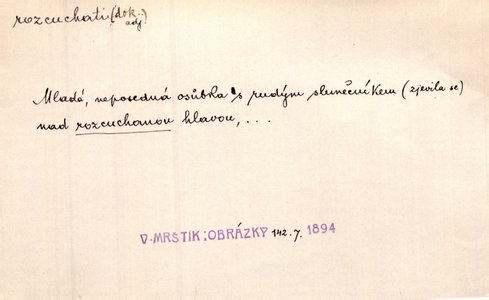 rozcuchati (dok. adj.)
Mladá, neposedná osůbka s rudým slunečníkem (zjevila se)
nad rozcuchanou hlavou, ...
V. MRŠTÍK: OBRÁZKY 142. 7. 1894